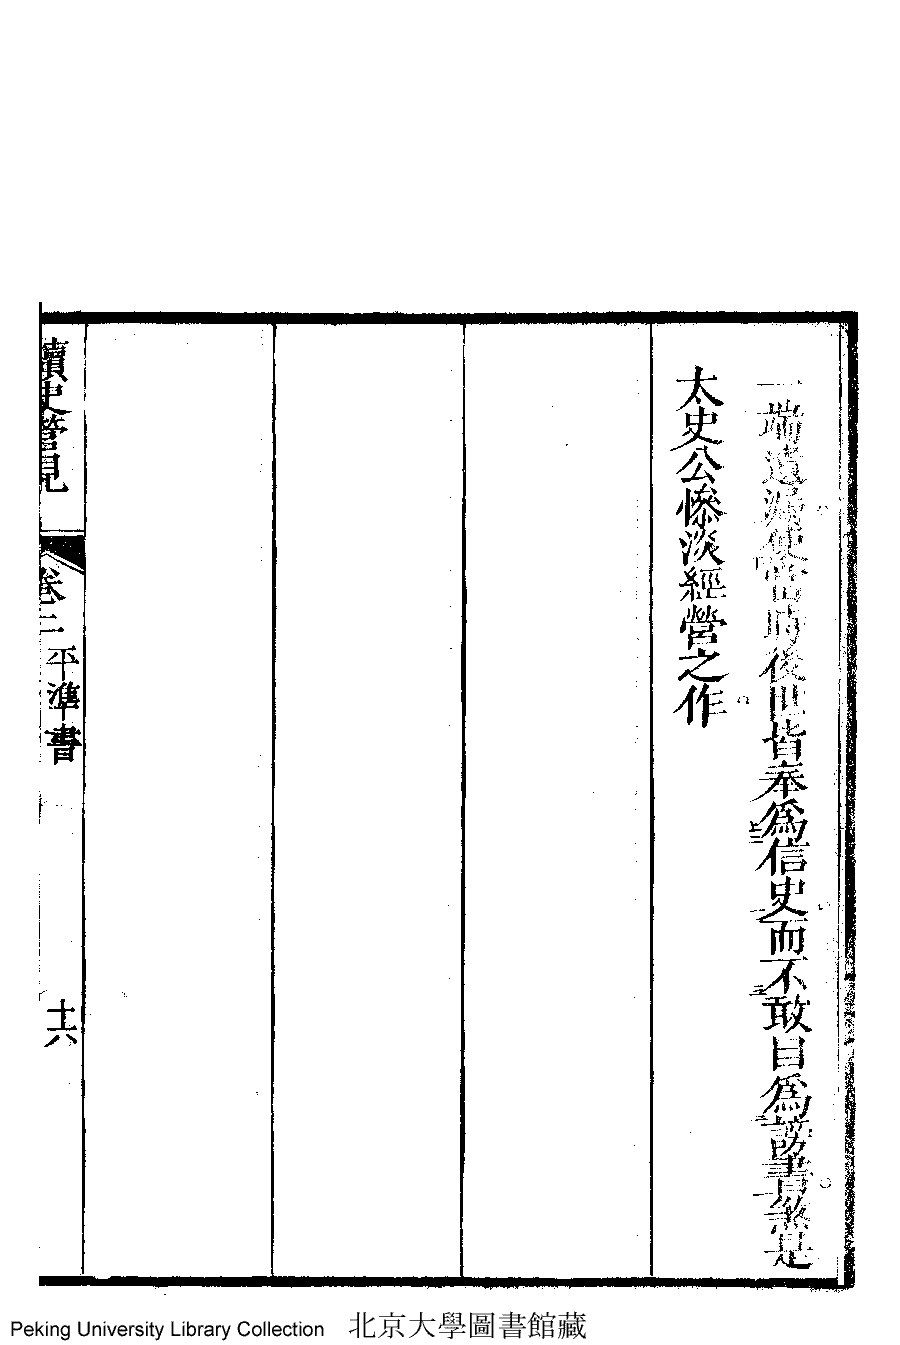 一端遺漏使當時後世皆奉爲信史而不敢目爲謗書煞是
太史公慘淡經營之作
讀史管見
卷二 平準書
十六
Peking University Library Collection 北京大學圖書館藏